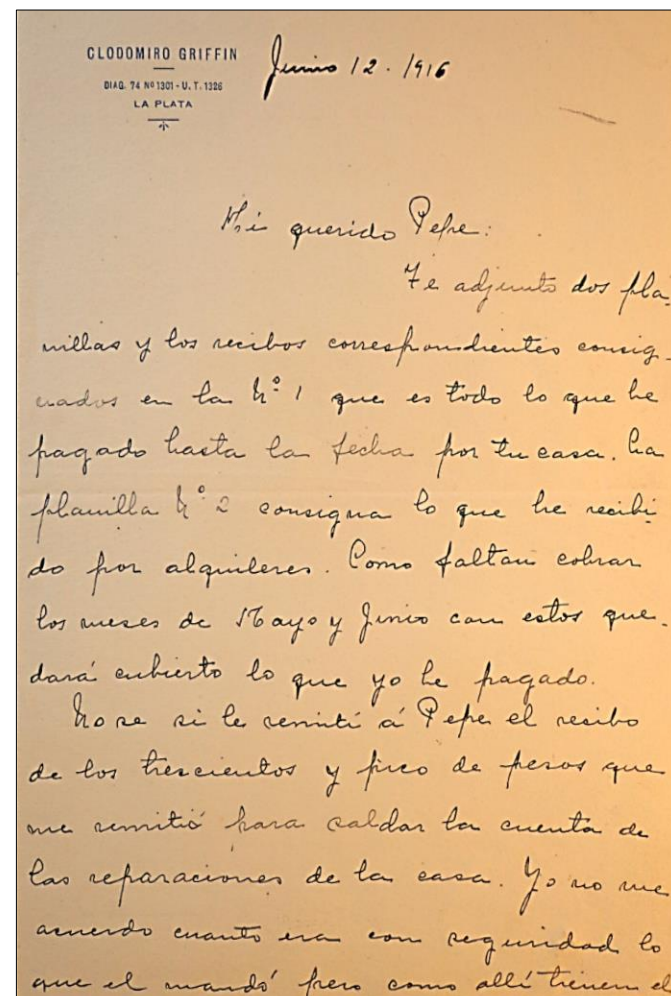 CLODOMIRO GRIFFIN
DIAG. 74 Nº 1301 - U. T. 1326
LA PLATA
Junio 12. 1916
Mi querido Pepe:
Te adjunto dos pla-
nillas y los recibos correspondientes consig-
nados en la Nº 1 que es todo lo que he
pagado hasta la fecha por tu casa. La
planilla Nº 2 consigna lo que he recibi-
do por alquileres. Como faltan cobrar
los meses de Mayo y Junio con estos que-
dará cubierto lo que yo he pagado.
No se si le remití á Pepe el recibo
de los trescientos y pico de pesos que
me remitió para saldar la cuenta de
las reparaciones de la casa. Yo no me
acuerdo cuanto era con seguridad lo
que el mandó pero como allí tienen el